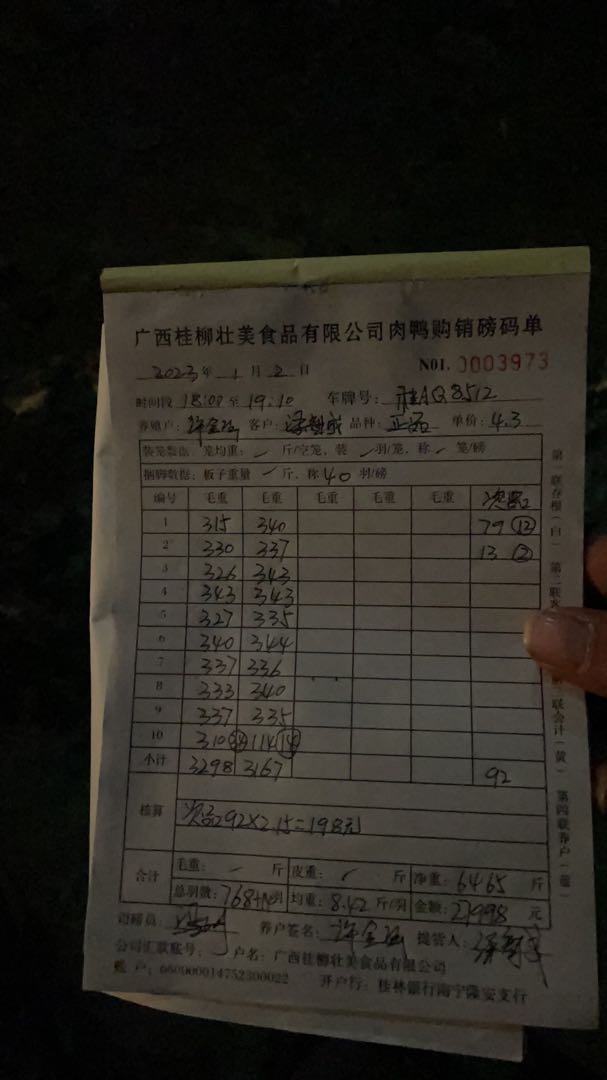 广西桂柳壮美食品有限公司肉鸭购销磅码单
2023年 1月 2日 N01. 0003973
时间段 18:00至19:10 车牌号：桂AQ8512
养殖户： 客户： 品种：正品 单价：4.3
装笼数据：笼均重： 斤/空笼，装 羽/笼，称 笼/磅
捆脚数据：板子重量 斤，称40羽/磅
编号 毛重 毛重 毛重 毛重 毛重 次品
1 315 340 79 ⑫
2 330 337 13 ②
3 326 343
4 343 343
5 327 335
6 340 344
7 337 336
8 333 340
9 337 335
10 310 114 ⑭
小计 3298 3167 92
核算 次品92×2.15=198元
合计 毛重： 斤 皮重： 斤 净重：6465 斤
总羽数：768+14羽 均重：8.42斤/羽 金额：27998 元
司磅员： 养户签名： 提货人：
公司汇款账号： 户名：广西桂柳壮美食品有限公司
账 户：660900014752300022 开户行：桂林银行南宁隆安支行
第一联存根（白）第二联客 三联会计（黄）第四联养户（蓝）